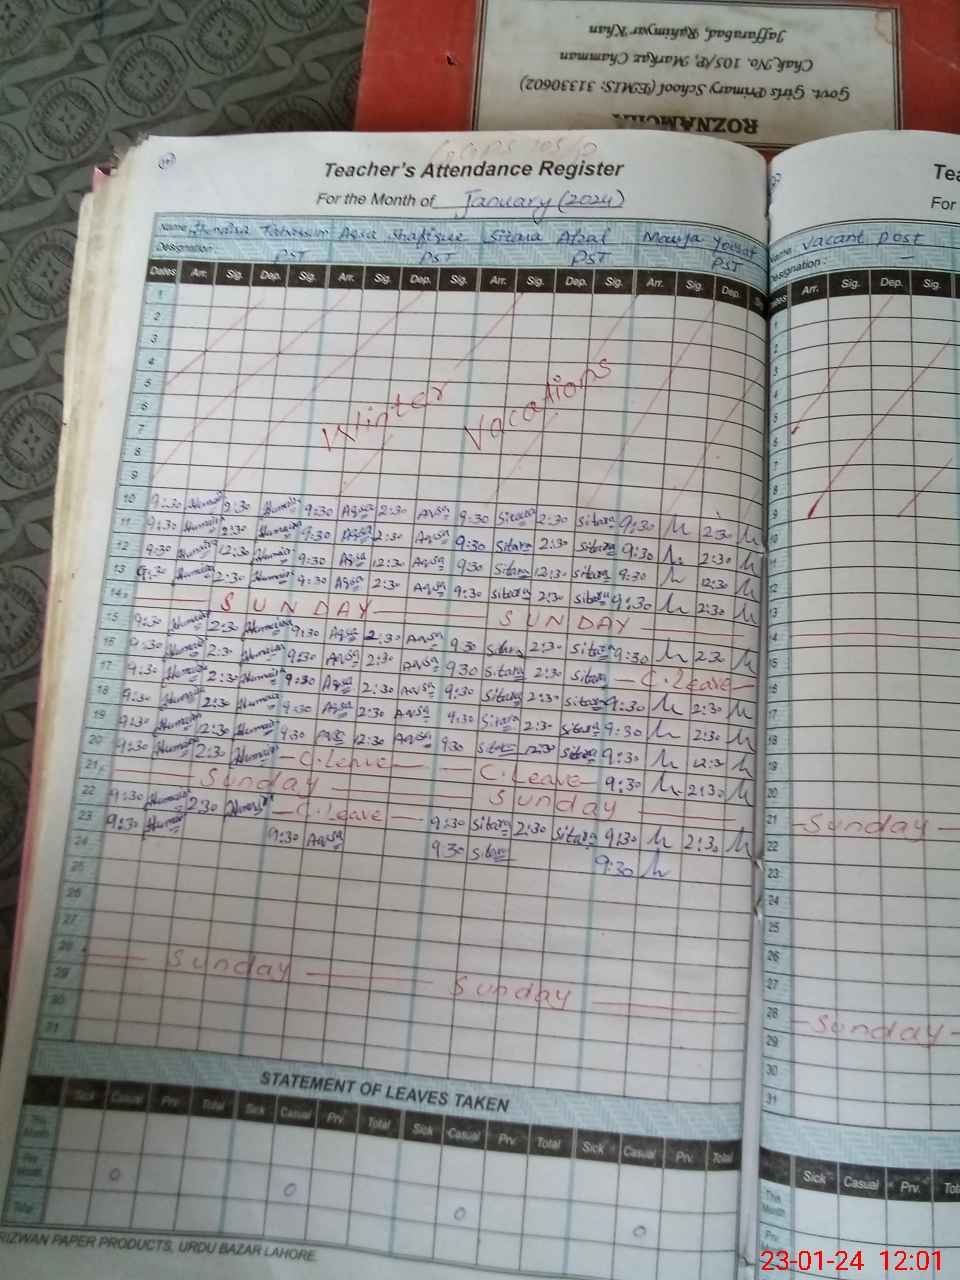 ROZNAMCHA
Govt. Girls Primary School (EMIS: 31330602)
Chak No. 105/P, Markaz Chamman
Jaffarabad, Rahimyar Khan
GGPS 105/P
Teacher's Attendance Register
For the Month of January (2024)
Name Humaira Tabassum Aqsa Shafique Sitara Afzal
Designation: PST PST PST PST
Dates Arr. Sig. Dep. Sig. Arr. Sig. Dep. Sig. Arr. Sig. Dep. Sig. Arr. Sig. Dep.
1
2
3
4
5
6
7
8
9
Winter Vacations
10 9:30 Humaira 2:30 Humaira 9:30 Aqsa 2:30 Aqsa 9:30 Sitara 2:30 Sitara 9:30 2:30
11 9:30 Humaira 2:30 Humaira 9:30 Aqsa 2:30 Aqsa 9:30 Sitara 2:30 Sitara 9:30 2:30
12 9:30 Humaira 12:30 Humaira 9:30 Aqsa 12:30 Aqsa 9:30 Sitara 12:30 Sitara 9:30 12:30
13 9:30 Humaira 2:30 Humaira 9:30 Aqsa 2:30 Aqsa 9:30 Sitara 2:30 Sitara 9:30 2:30
14 SUNDAY SUNDAY
15 9:30 Humaira 2:30 Humaira 9:30 Aqsa 2:30 Aqsa 9:30 Sitara 2:30 Sitara 9:30 2:30
16 9:30 Humaira 2:30 Humaira 9:30 Aqsa 2:30 Aqsa 9:30 Sitara 2:30 Sitara C.Leave
17 9:30 Humaira 2:30 Humaira 9:30 Aqsa 2:30 Aqsa 9:30 Sitara 2:30 Sitara 9:30 2:30
18 9:30 Humaira 2:30 Humaira 9:30 Aqsa 2:30 Aqsa 9:30 Sitara 2:30 Sitara 9:30 2:30
19 9:30 Humaira 12:30 Humaira 9:30 Aqsa 12:30 Aqsa 9:30 Sitara 12:30 Sitara 9:30 12:30
20 9:30 Humaira 2:30 Humaira C.Leave C.Leave 9:30 2:30
21 Sunday Sunday
22 9:30 Humaira 2:30 Humaira C.Leave 9:30 Sitara 2:30 Sitara 9:30 2:30
23 9:30 Humaira 9:30 Aqsa 9:30 Sitara 9:30
24
25
26
27
28 Sunday Sunday
29
30
31
STATEMENT OF LEAVES TAKEN
Sick Casual Prv. Total Sick Casual Prv. Total Sick Casual Prv. Total Sick Casual Prv. Total
This Month
Prv. Month 0 0 0 0
Total
RIZWAN PAPER PRODUCTS, URDU BAZAR LAHORE.
Name: Vacant post
Designation:
Arr. Sig. Dep. Sig.
1
2
3
4
5
6
7
8
9
10
11
12
13
14
15
16
17
18
19
20
21 Sunday
22
23
24
25
26
27
28 Sunday
29
30
31
Sick Casual Prv.
This Month
23-01-24 12:01